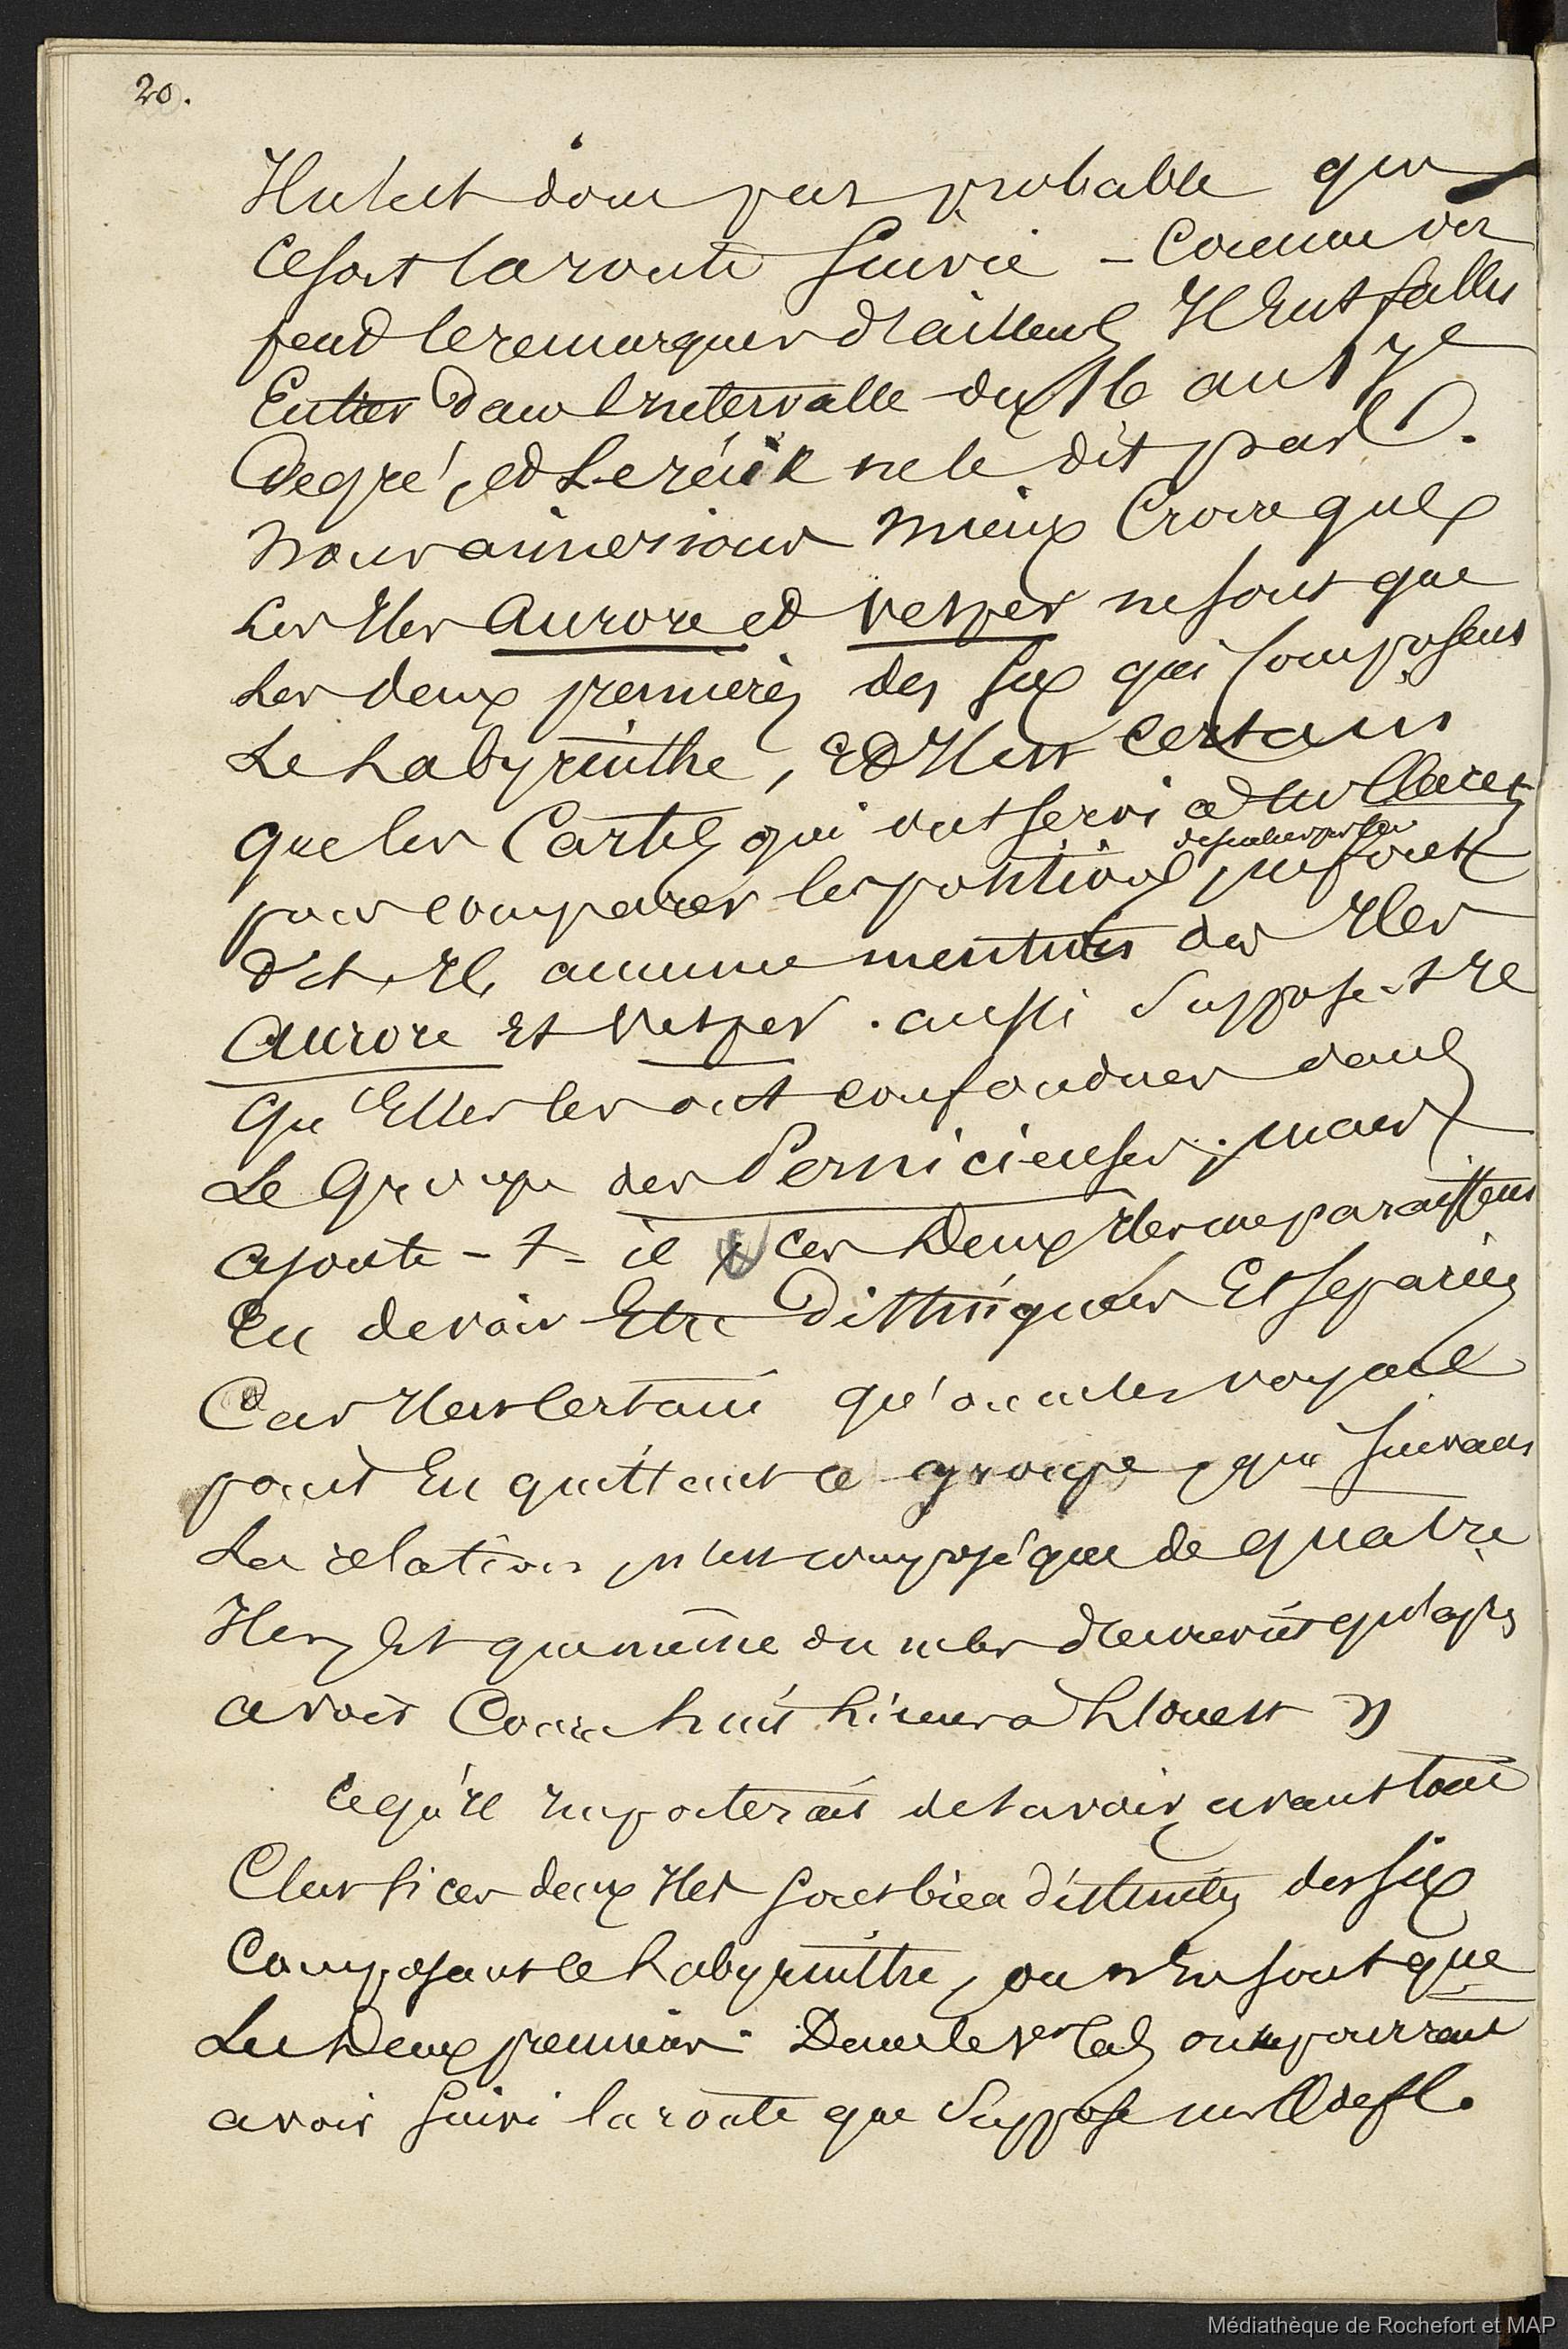 20.
Il n'est donc pas probable que
ce soit la route suivie – Comme on
peut le remarquer d'ailleurs Il eut fallu
Entrer dans l'intervalle du 16 au 17e
degré, et le récit ne le dit pas.
Nous aimerions mieux Croire que
les Iles Aurore et Vesper ne sont que
les deux premières des six qui composent
Le Labyrinthe, et Il est certain
que les Cartes qui ont servi à Mr
pour comparer les positions ne font
dit-Il, aucune mention des Iles
Aurore et Vesper. aussi suppose-t-Il
qu'Elles les ont confondues dans
Le Groupe des Pernicieuses; mais
ajoute-t-il ces Deux Iles me paraissent
en devoir Etre Distinguées Et séparées
Car Il est certain qu'on ne les voyait
point En quittant ce groupe, qui suivant
La relation, n'est composé que de quatre
Iles, Et que même on ne les découvrit qu'après
avoir Couru huit lieues à l'Ouest »
Ce qu'Il importerait de savoir avant tout
C'est si ces deux Iles sont bien distinctes des six
Composant le Labyrinthe, ou n'En sont que
Les Deux premières. Dans le 1er Cas, on pourrait
avoir suivi la route que suppose Mr de Fl.
Médiathèque de Rochefort et MAP